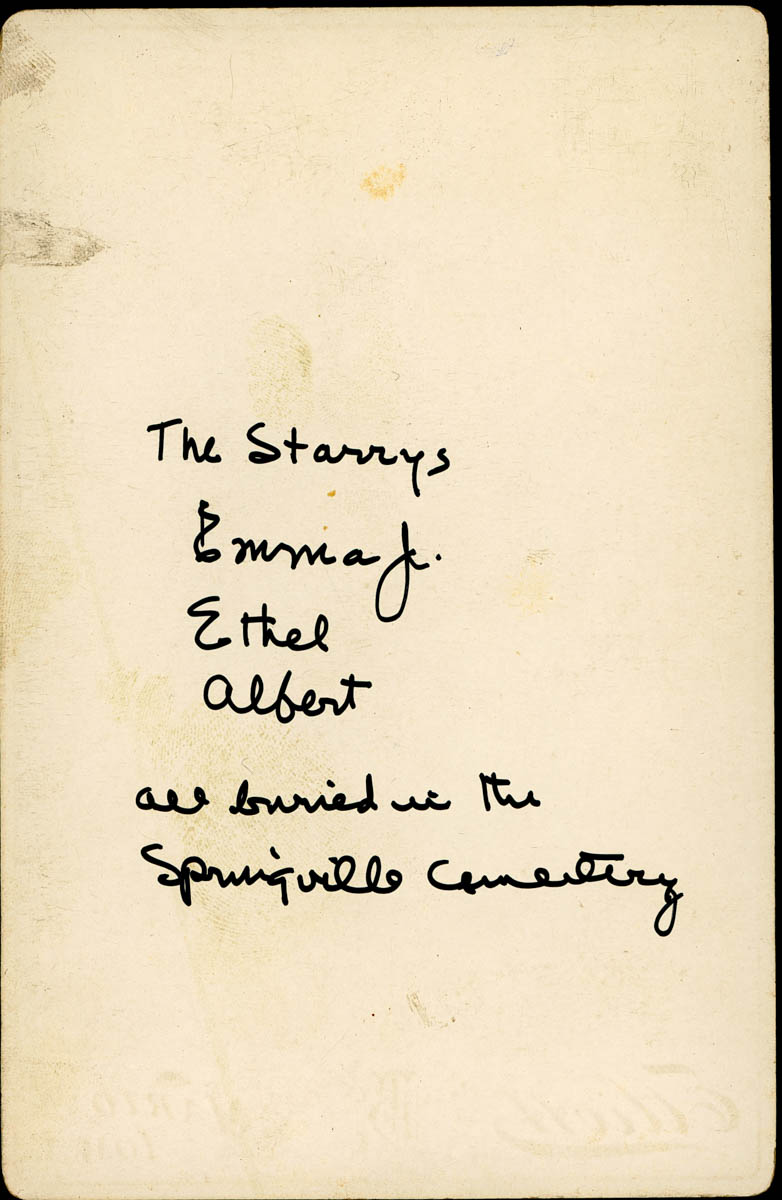 The Starrys
Emma J.
Ethel
Albert
all buried in the
Springville Cemetery